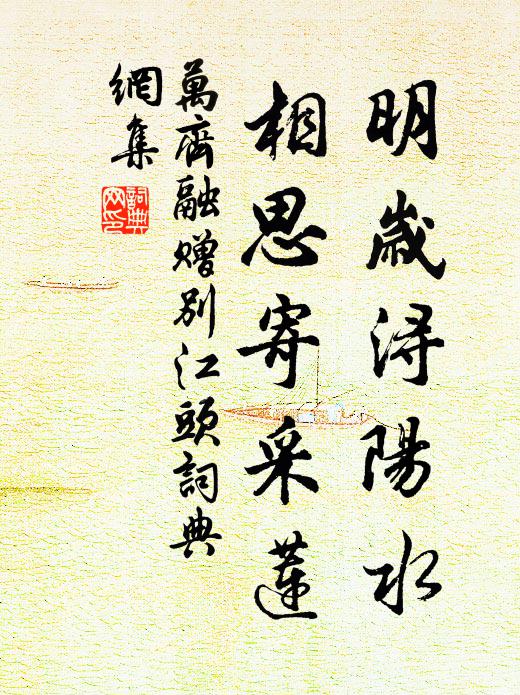 明歲潯陽水
相思寄采蓮
萬齊融贈別江頭詞典
網集
詞典
網印